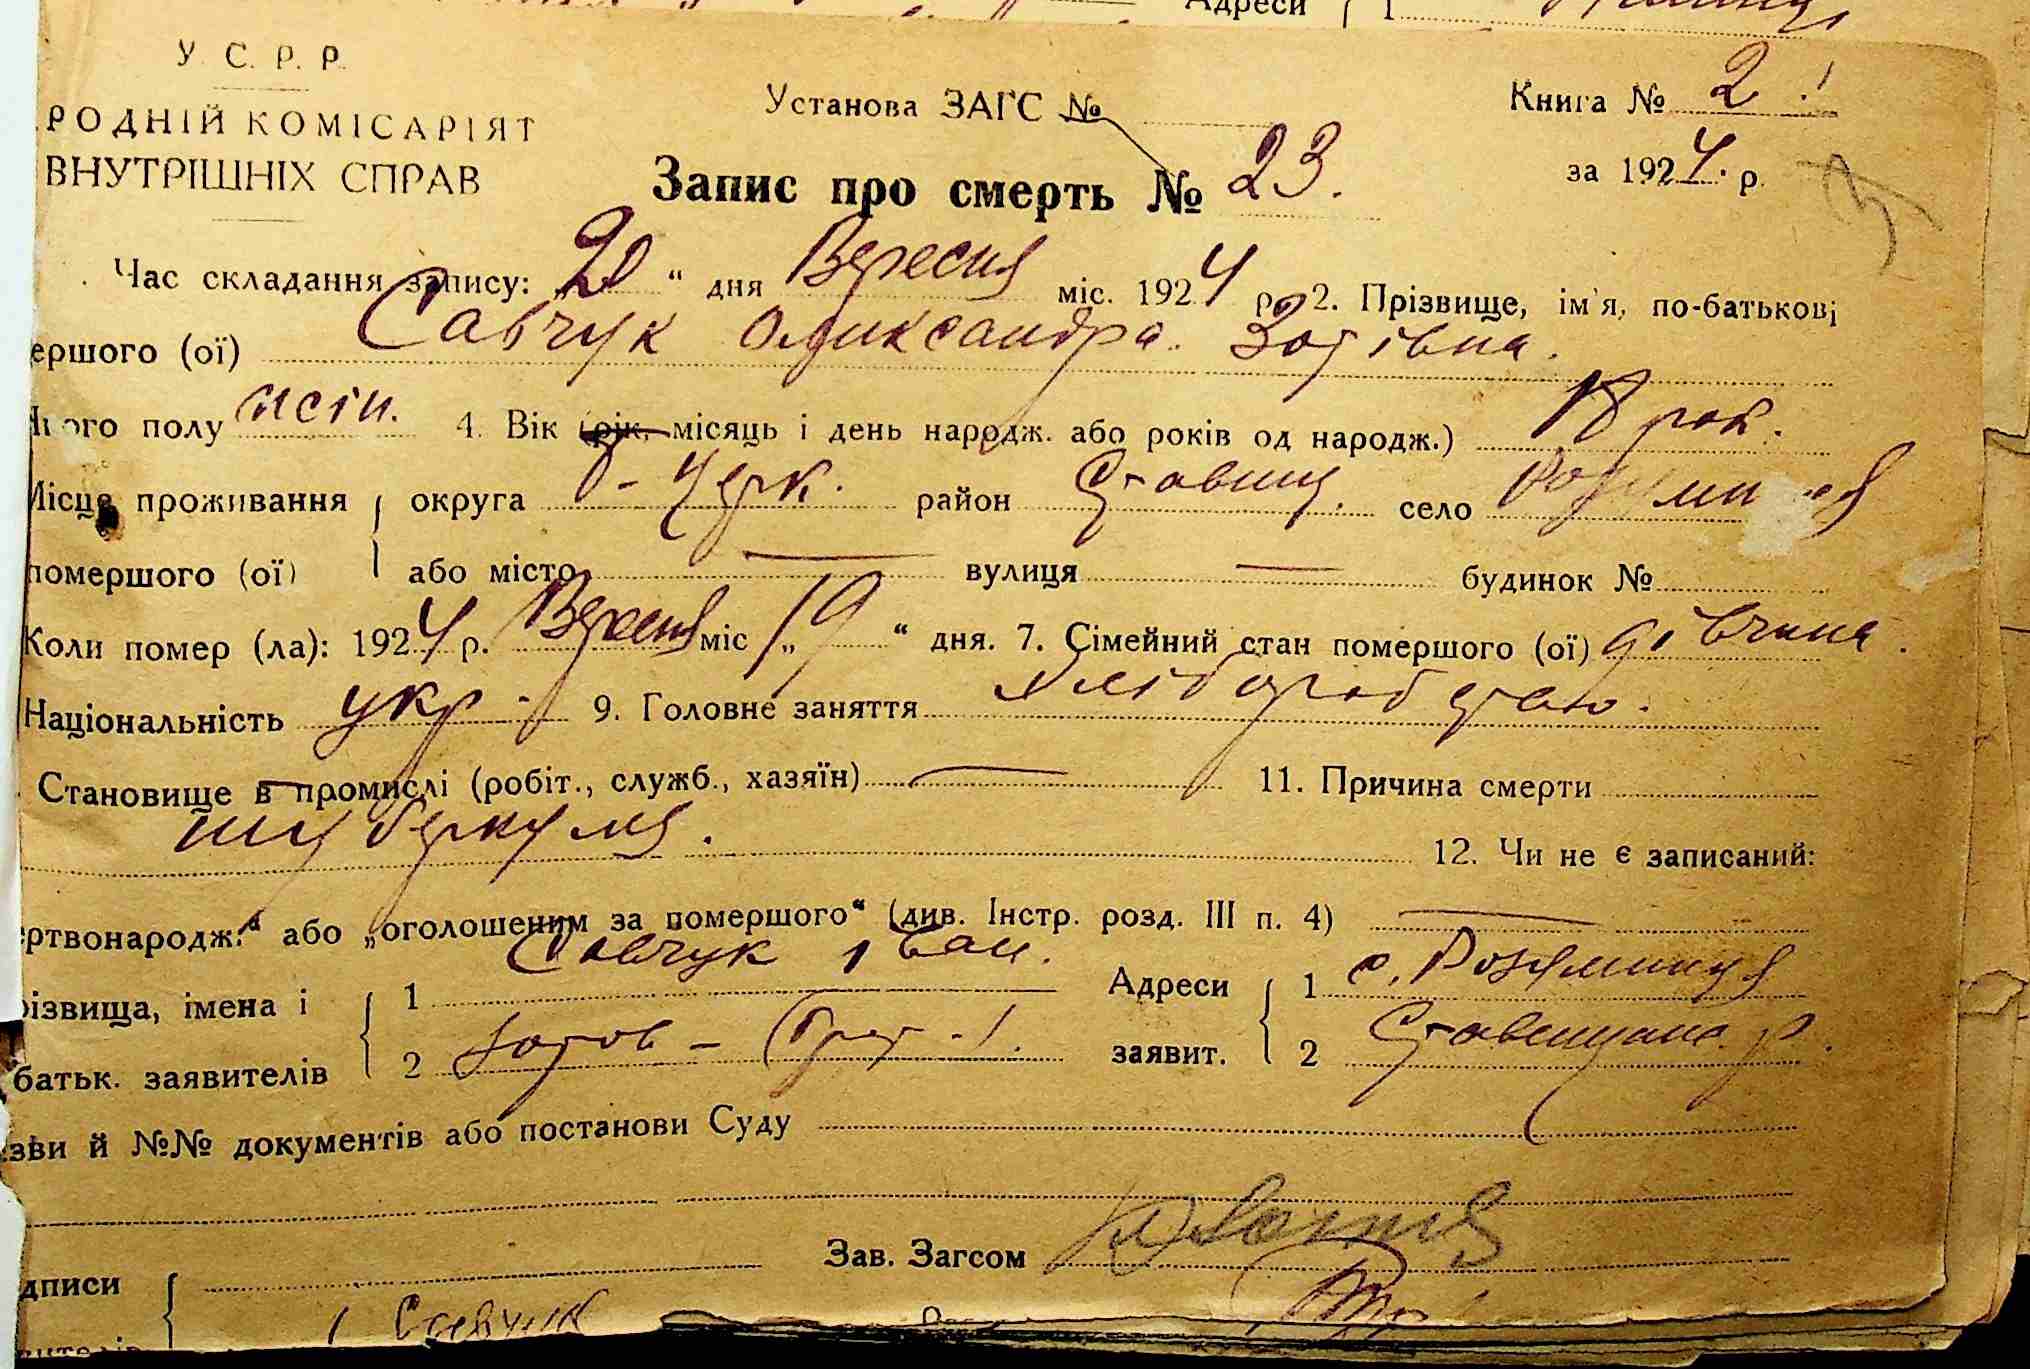 Адреси 1
У. С. Р. Р.
РОДНІЙ КОМІСАРІЯТ
ВНУТРІШНІХ СПРАВ
Установа ЗАГС №
Книга № 2
Запис про смерть № 23.
за 1924 р.
Час складання запису: „20“ дня Вересня міс. 1924 р. 2. Прізвище, ім'я, по-батькові
ершого (ої) Савчук Олександра Зотівна.
ого полу жін. 4. Вік (рік, місяць і день народж. або років од народж.) 18 рок.
Місце проживання округа Б-Церк. район Ставищ. село
помершого (ої) або місто — вулиця — будинок №
Коли помер (ла): 1924 р. Вересня міс „19“ дня. 7. Сімейний стан помершого (ої) дівчина.
Національність укр. 9. Головне заняття
Становище в промислі (робіт., служб., хазяїн) — 11. Причина смерти
туберкульоз.
12. Чи не є записаний:
ертвонародж.“ або „оголошеним за помершого“ (див. Інстр. розд. III п. 4) —
різвища, імена і 1 Савчук Іван Адреси 1 с. Розумниця
батьк. заявителів 2 Зотов – (брат). заявит. 2 р.
зви й №№ документів або постанови Суду
Зав. Загсом
дписи
Савчук